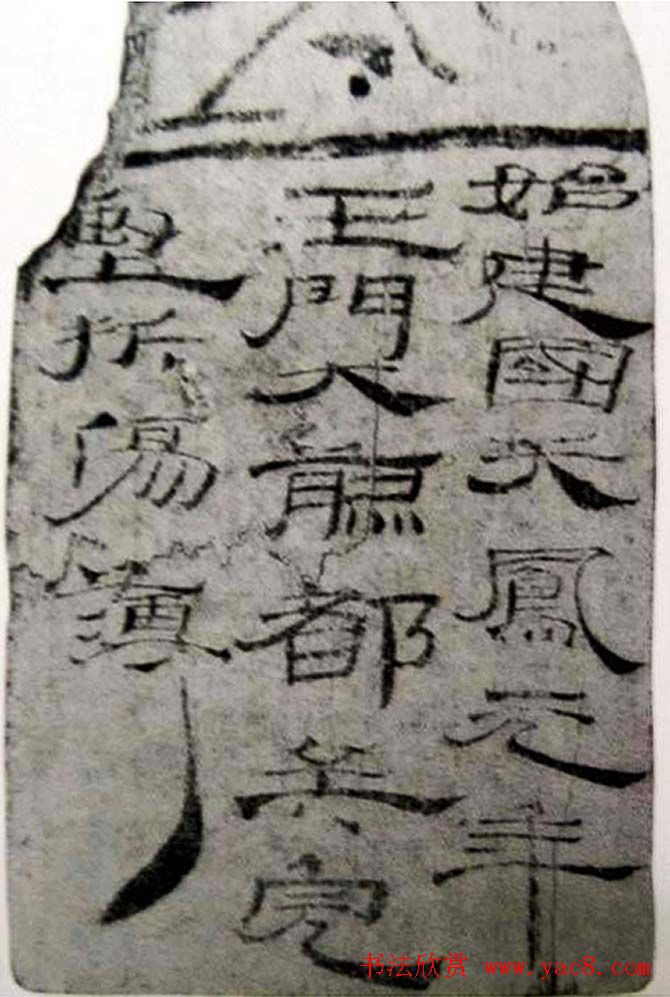 始建國天鳳元年
玉門大煎都兵完
堅折傷簿
书法欣赏 www.yac8.com